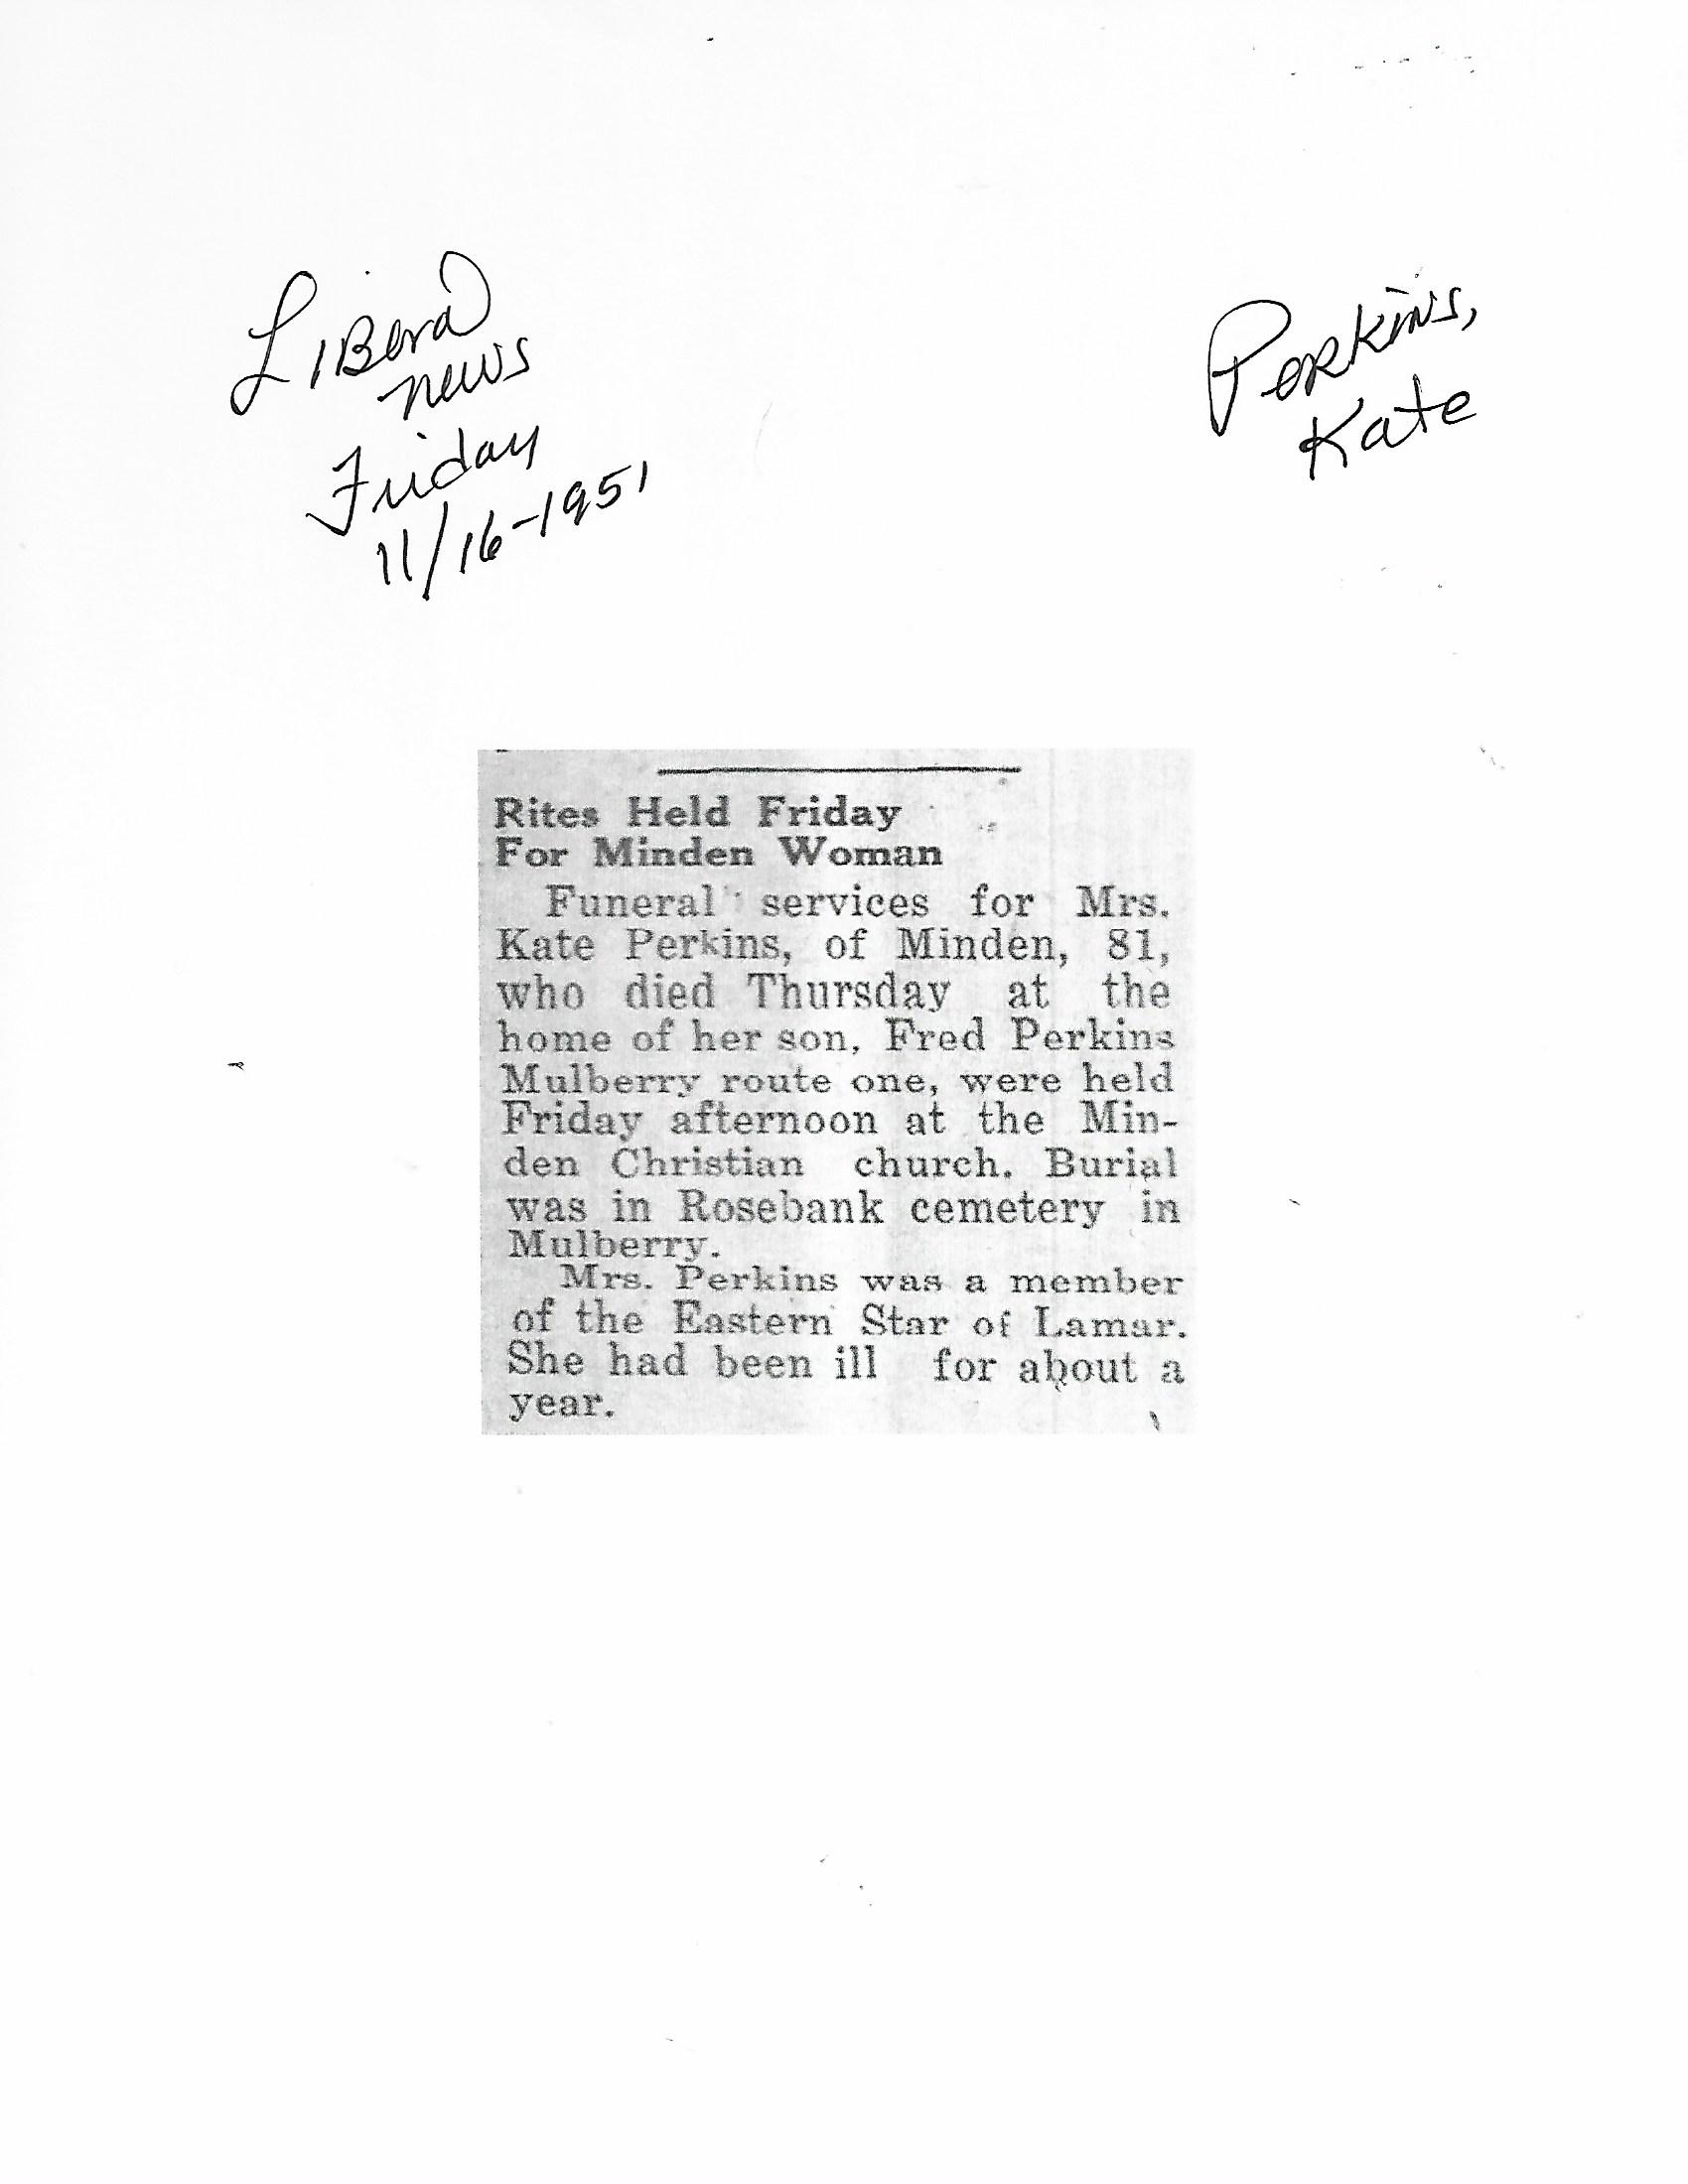 Liberal
news
Friday
11/16-1951
Perkins,
Kate
Rites Held Friday
For Minden Woman
Funeral services for Mrs.
Kate Perkins, of Minden, 81,
who died Thursday at the
home of her son, Fred Perkins
Mulberry route one, were held
Friday afternoon at the Min-
den Christian church. Burial
was in Rosebank cemetery in
Mulberry.
Mrs. Perkins was a member
of the Eastern Star of Lamar.
She had been ill for about a
year.